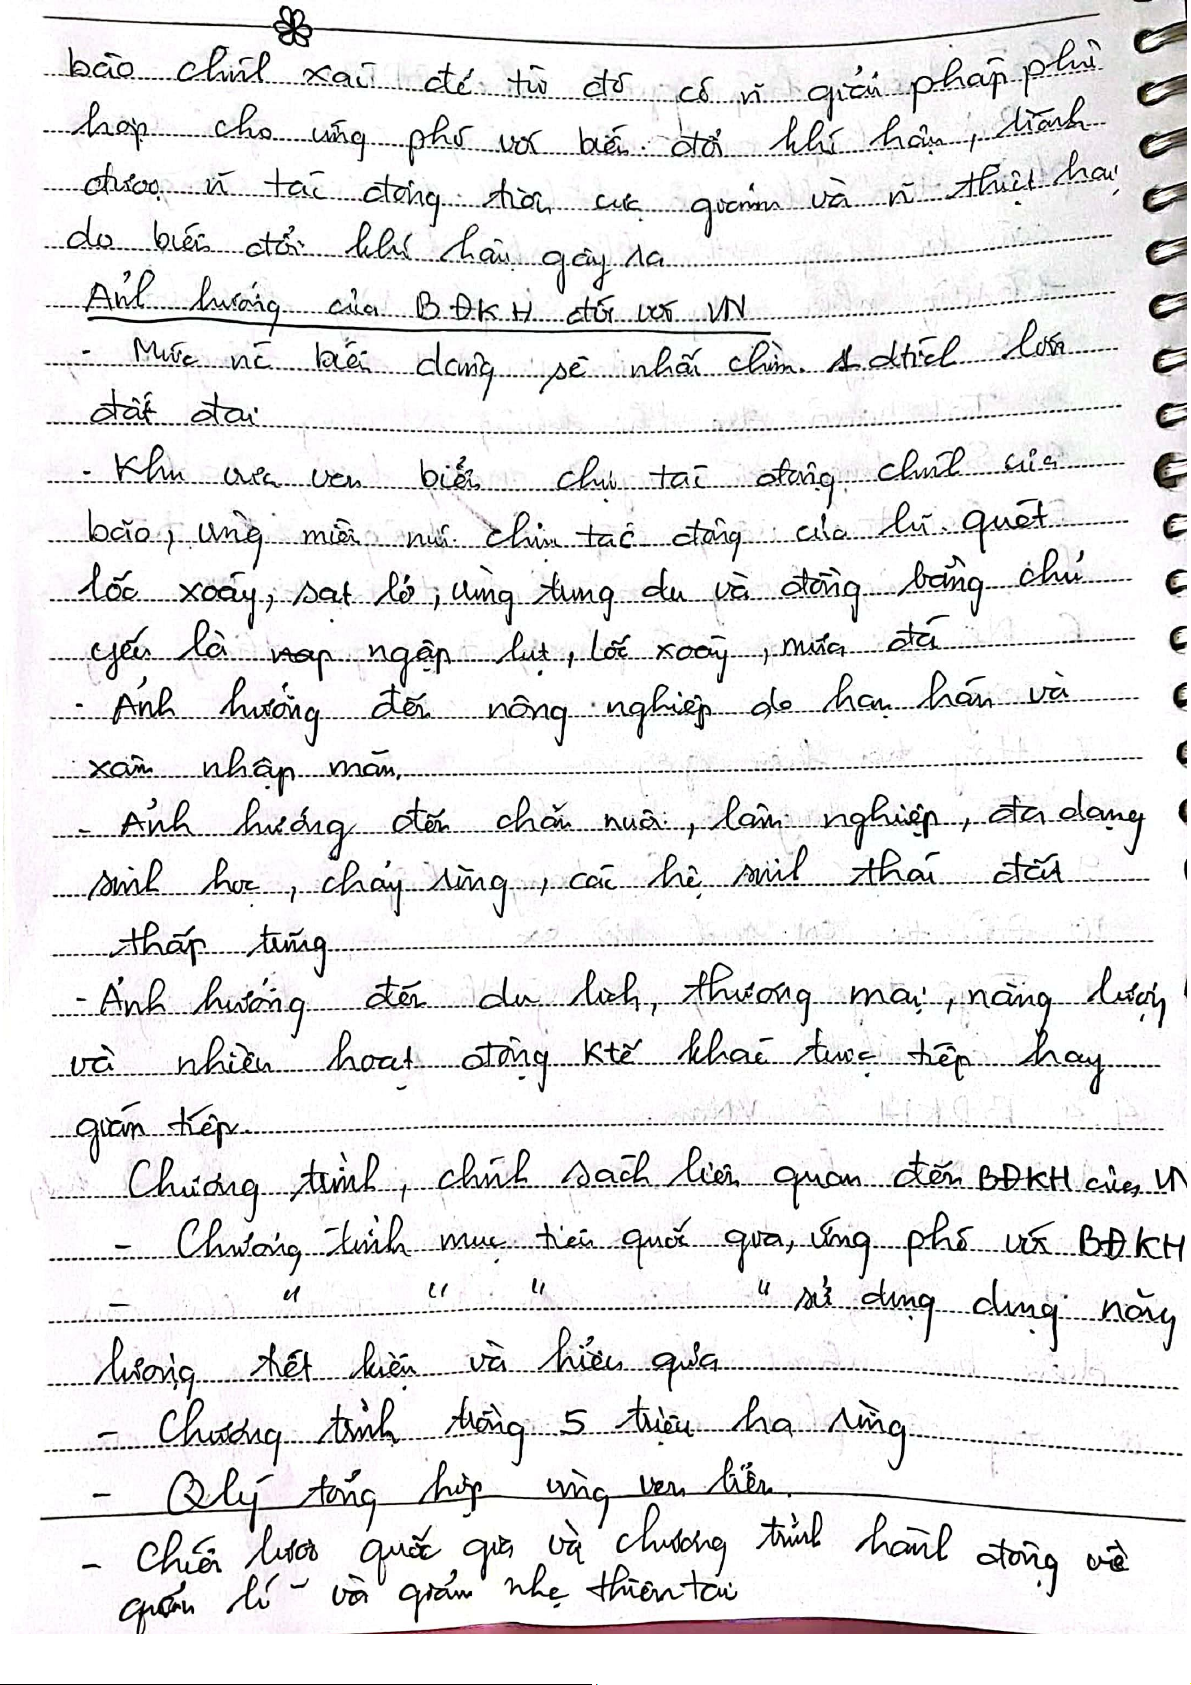 báo chính xác để từ đó có n~ giải pháp phù
hợp cho ứng phó với biến đổi khí hậu, tránh
được n~ tác động tiêu cực giảm và n~ thiệt hại
do biến đổi khí hậu gây ra
Ảnh hưởng của BĐKH đối với VN
- Mực nc biển dâng sẽ nhấn chìm 1 dtích lớn
đất đai
- Khu vực ven biển chịu tác động chính của
bão, vùng miền núi chịu tác động của lũ quét
lốc xoáy, sạt lở, vùng trung du và đồng bằng chủ
yếu là ngập lụt, lốc xoáy, mưa đá
- Ảnh hưởng đến nông nghiệp do hạn hán và
xâm nhập mặn.
- Ảnh hưởng đến chăn nuôi, lâm nghiệp, đa dạng
sinh học, cháy rừng, các hệ sinh thái đất
thấp trũng
- Ảnh hưởng đến du lịch, thương mại, năng lượng
và nhiều hoạt động Ktế khác trực tiếp hay
gián tiếp.
Chương trình, chính sách liên quan đến BĐKH của VN
- Chương trình mục tiêu quốc gia, ứng phó với BĐKH
- " " " " sử dụng dụng năng
lượng tiết kiệm và hiệu quả
- Chương trình trồng 5 triệu ha rừng
- Qlý tổng hợp vùng ven biển.
- Chiến lược quốc gia và chương trình hành động về
quản lí và giảm nhẹ thiên tai